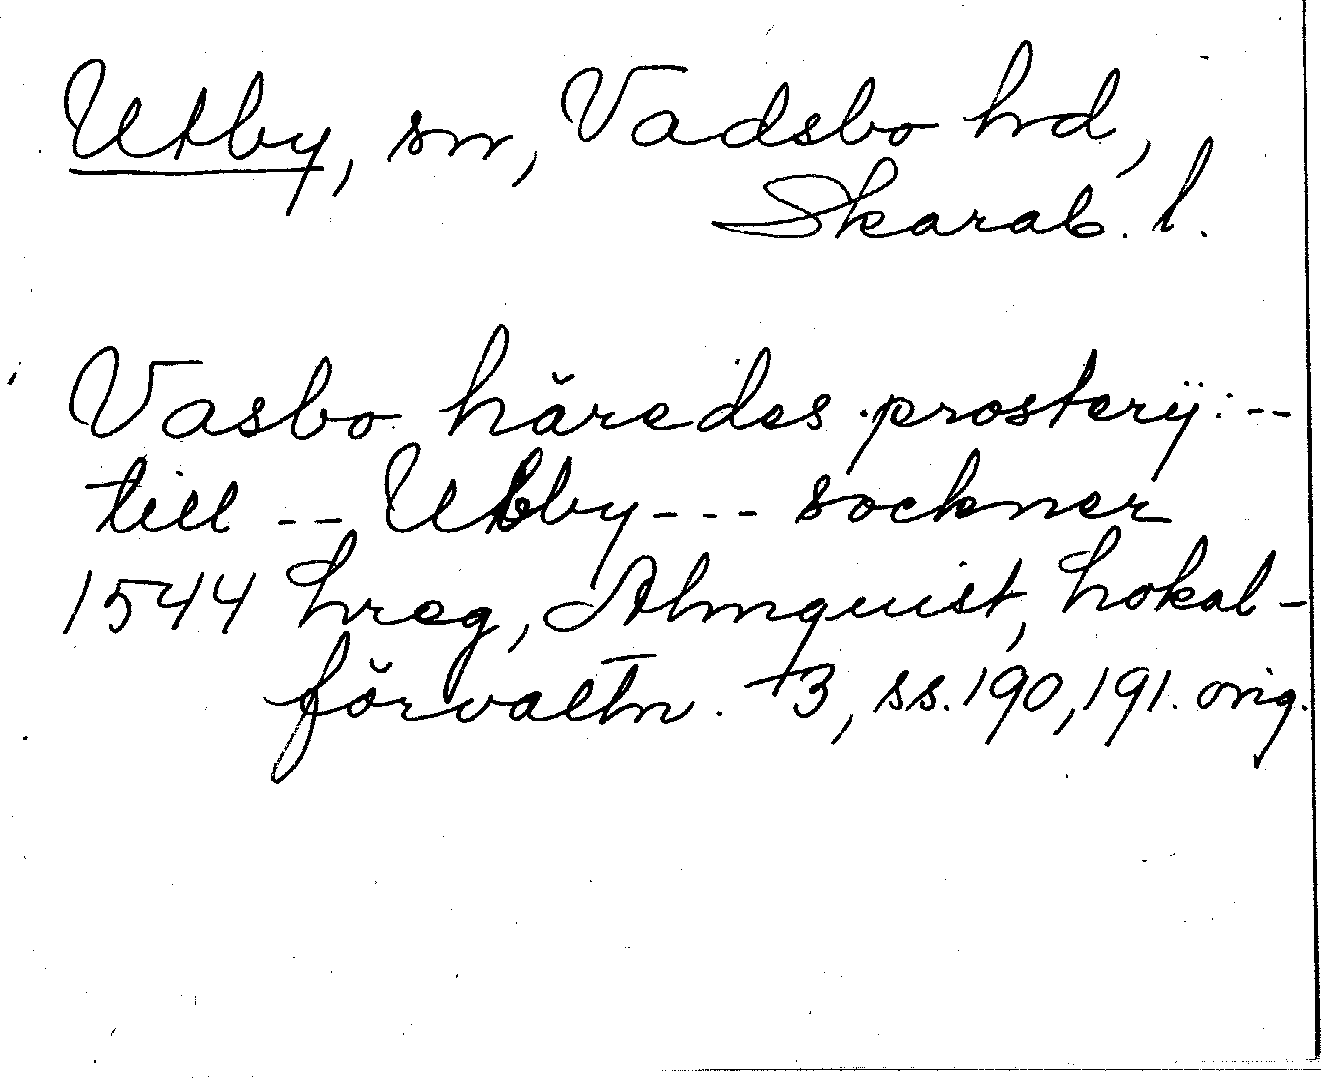 Utby, sn, Vadsbo hd,
Skarab. l.
Vasbo häredes prosterÿ: --
till -- Utby --- sockner
1544 hreg, Almquist, Lokal-
förvaltn. 3, ss. 190, 191. orig.